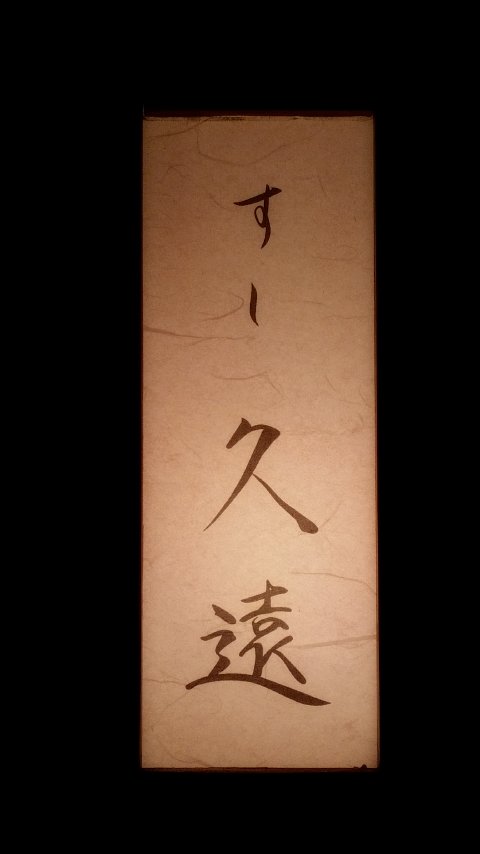 すし久遠